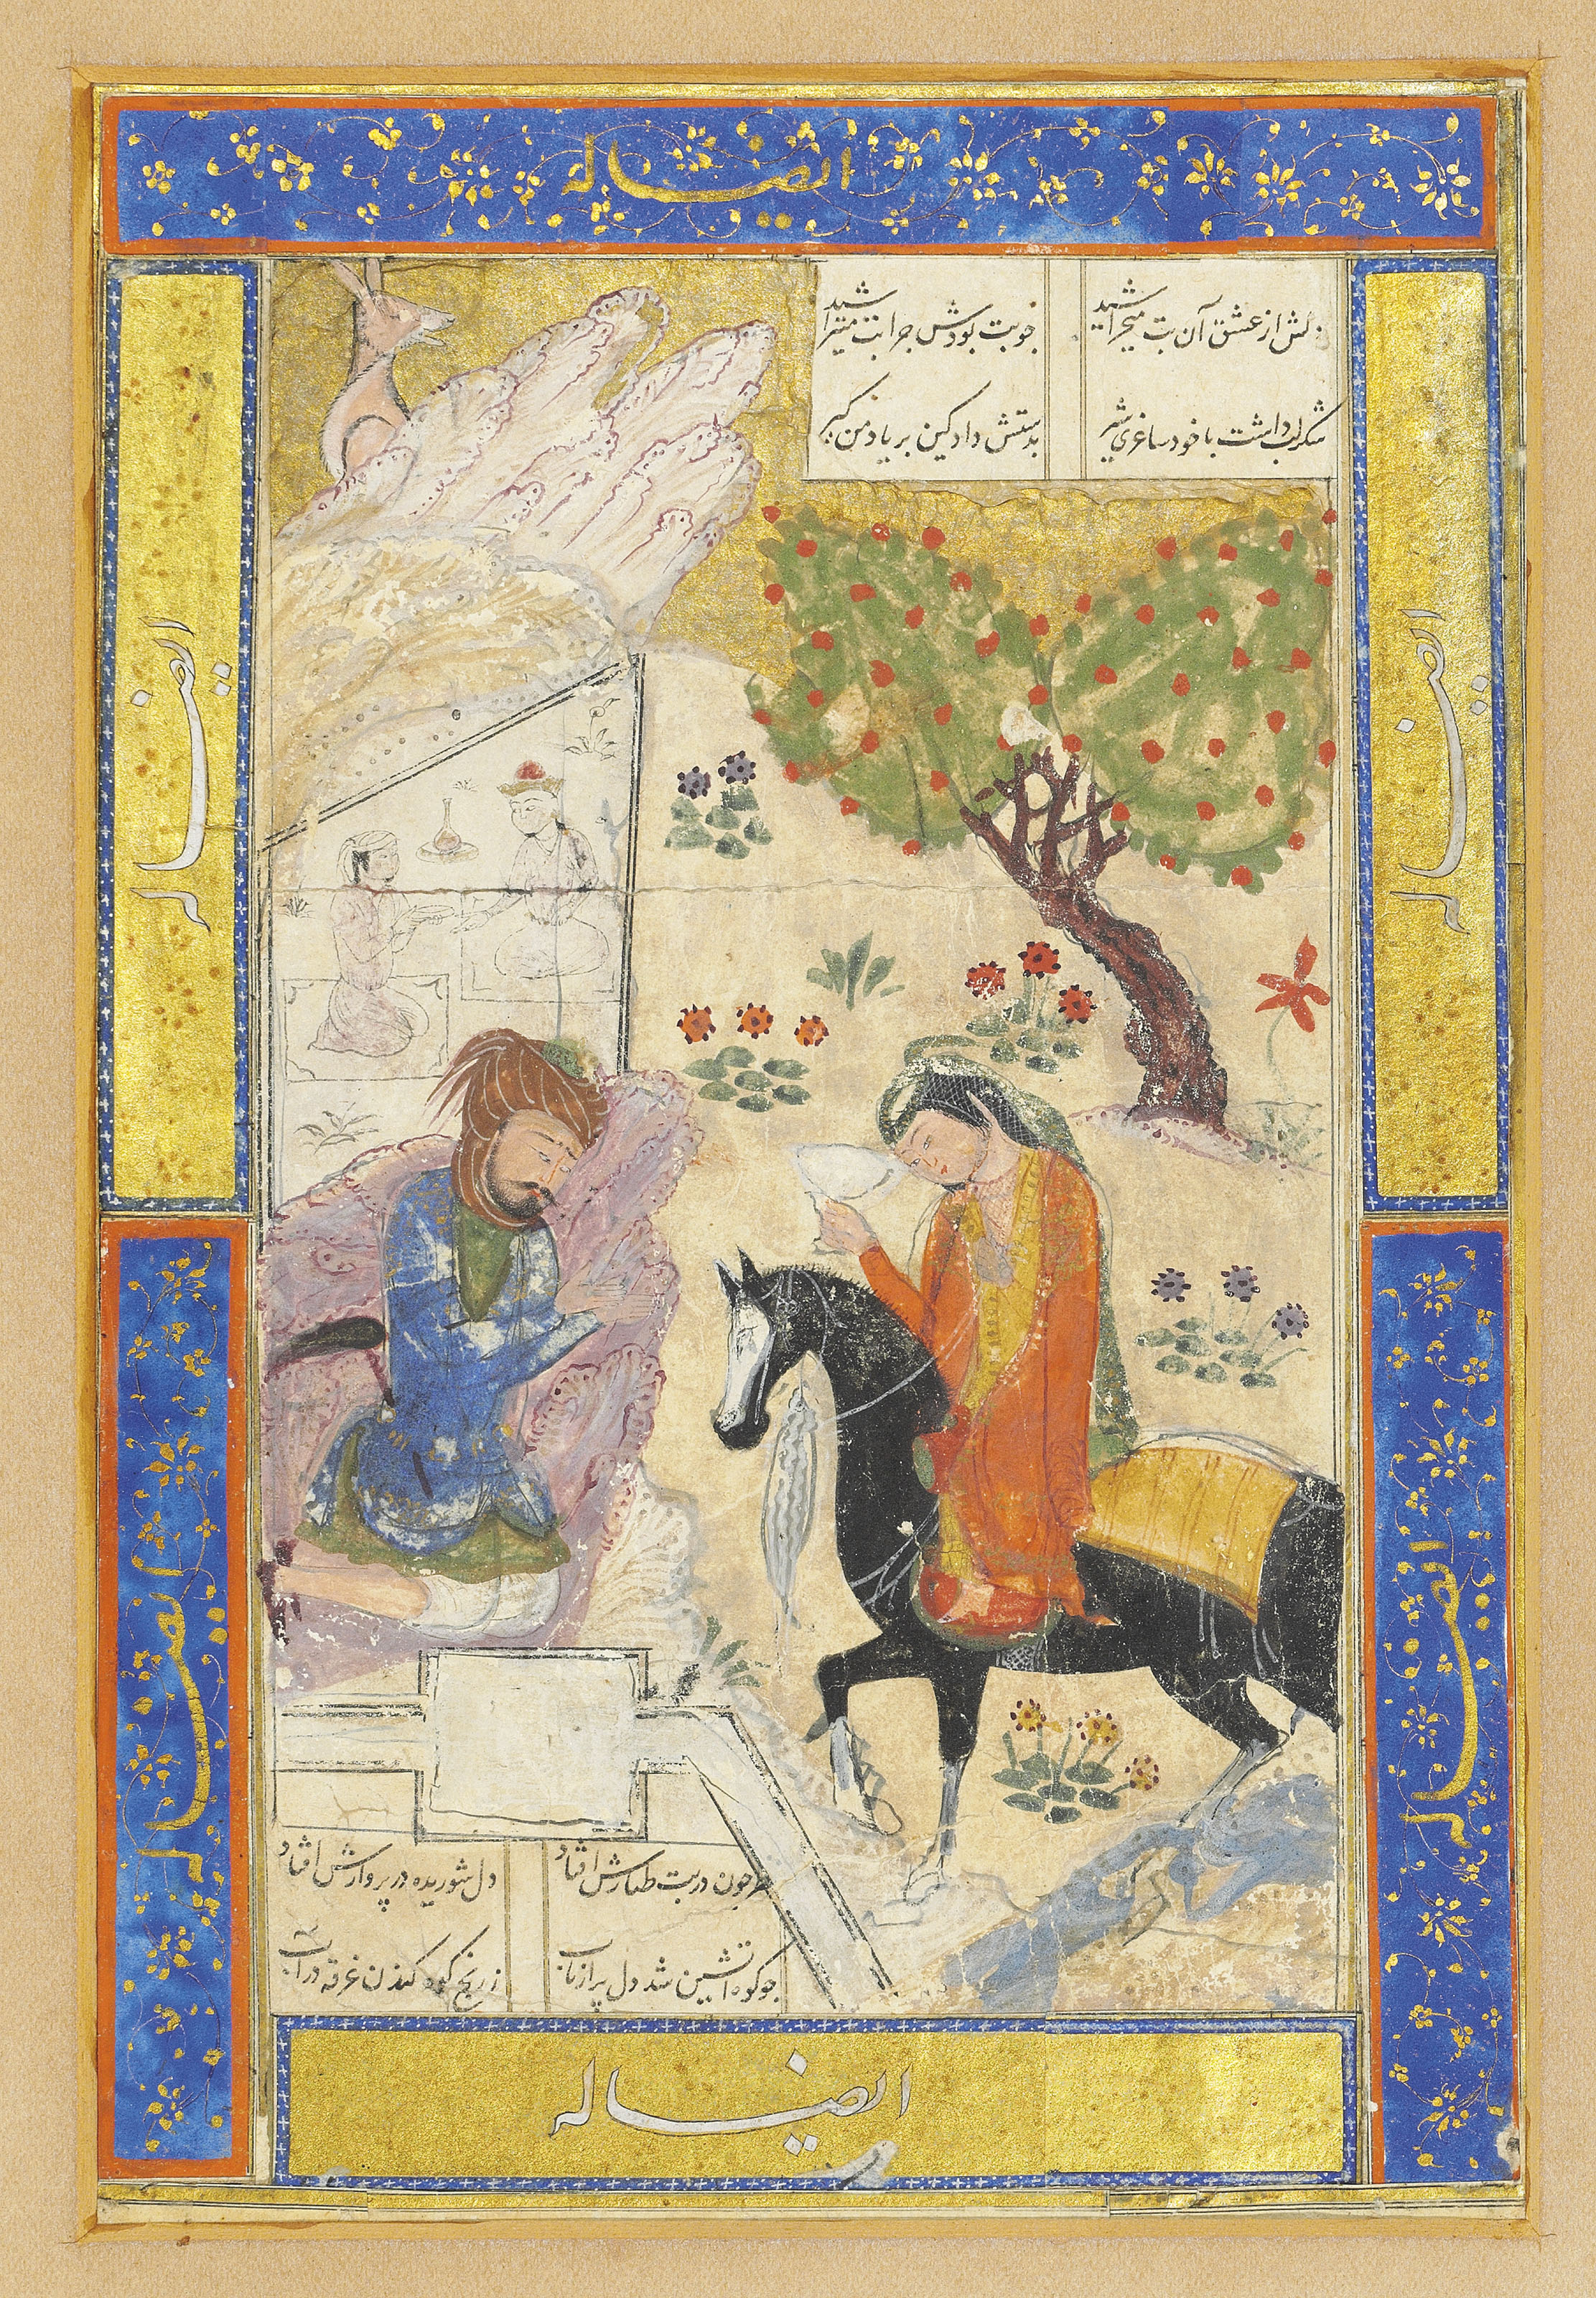 ایضاله
دلش از عشق آن بت میخراشید جو بت بودش جرا بت میتراشید
شکرلب داشت با خود ساغری شیر بدستش داد کین بر یاد من کیر
ایضاله
ایضاله
ایضاله
ایضاله
جون در بت طنازش افتاد دل شوریده در پروازش افتاد
جو کوه آتشین شد دل پر از تاب ز رنج کوه کندن غرقه در آب
ایضاله